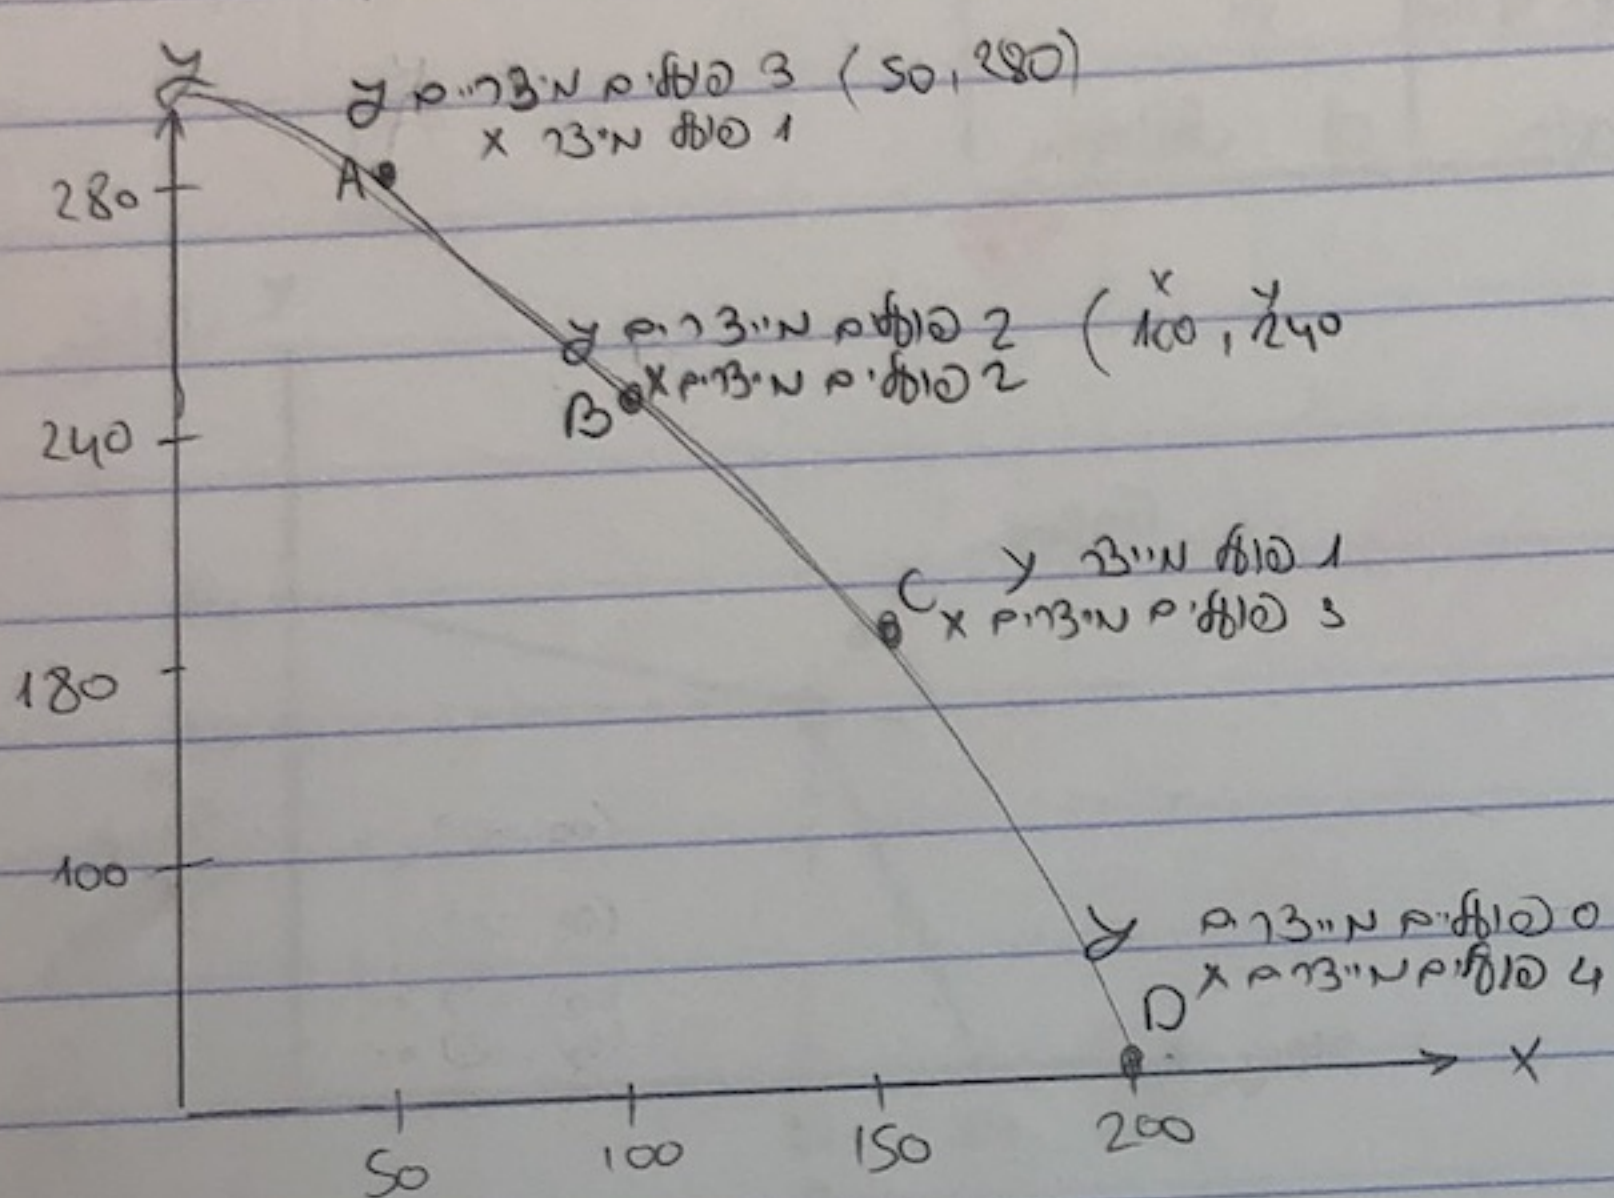 y
3 פועלים מייצרים y (50, 280)
1 פועל מייצר x
A
280
2 פועלים מייצרים y (100, 240
x y
2 פועלים מייצרים x
B
240
1 פועל מייצר y
C
3 פועלים מייצרים x
180
100
0 פועלים מייצרים y
4 פועלים מייצרים x
D
x
50 100 150 200